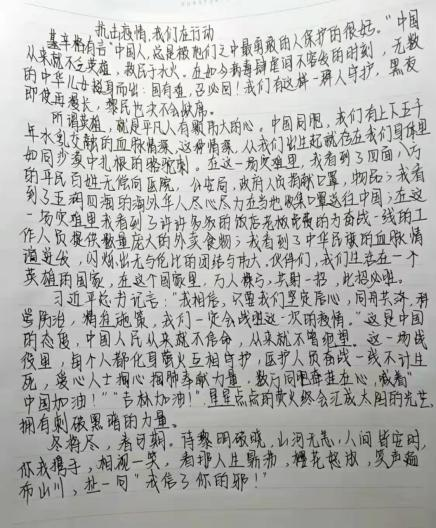 抗击疫情,我们在行动
基辛格有言"中国人,总是被他们之中最勇敢的人保护的很好。"中国
从来就不乏英雄,救民于水火。在如今病毒肆虐间不容缓的时刻,无数
的中华儿女挺身而出:国有难,召必回!我们有这样一群人守护,黑夜
即使再漫长,黎民也决不会缺席。
所谓英雄,就是平凡人有颗伟大的心。中国同胞,我们有上下五千
年水乳交融的血脉情深,这种情深,从我们出生起就存在我们身体里
如同沙漠中扎根的骆驼刺。在这一场灾难里,我看到了四面八方
的平民百姓无偿向医院,公安局,政府人员捐献口罩,物品;我看
到了五湖四海的海外华人尽心尽力在当地收集口罩送往中国;在这
一场灾难里我看到了许许多多的饭店老板免费的为奋战一线的工
作人员提供数量庞大的外卖食物;我看到了中华民族的血脉情
闪烁出无与伦比的团结与伟大。伙伴们,我们生活在一个
英雄的国家,在这个国家里,万人操弓,共射一招,此招必胜。
习近平总书记言:"我相信,只要我们坚定信心,同舟共济,科
学防治,精准施策,我们一定会战胜这一次的疫情。"这是中国
的态度,中国人民从来就不信命,从来就不管绝望。这一场战
役里,每个人都化身萤火互相守护,医护人员奋战一线不计生
死,爱心人士捐心捐肺奉献力量,数万同胞牵挂在心,喊着"
中国加油!""吉林加油!"星星点点的萤火终会汇成太阳的光芒,
拥有刺破黑暗的力量。
冬将尽,春可期。待黎明破晓,山河无恙,人间皆安时,
你我携手,相视一笑,看那人生勃勃,樱花怒放,笑声遍
布山川,扯一句"我信了你的邪!"